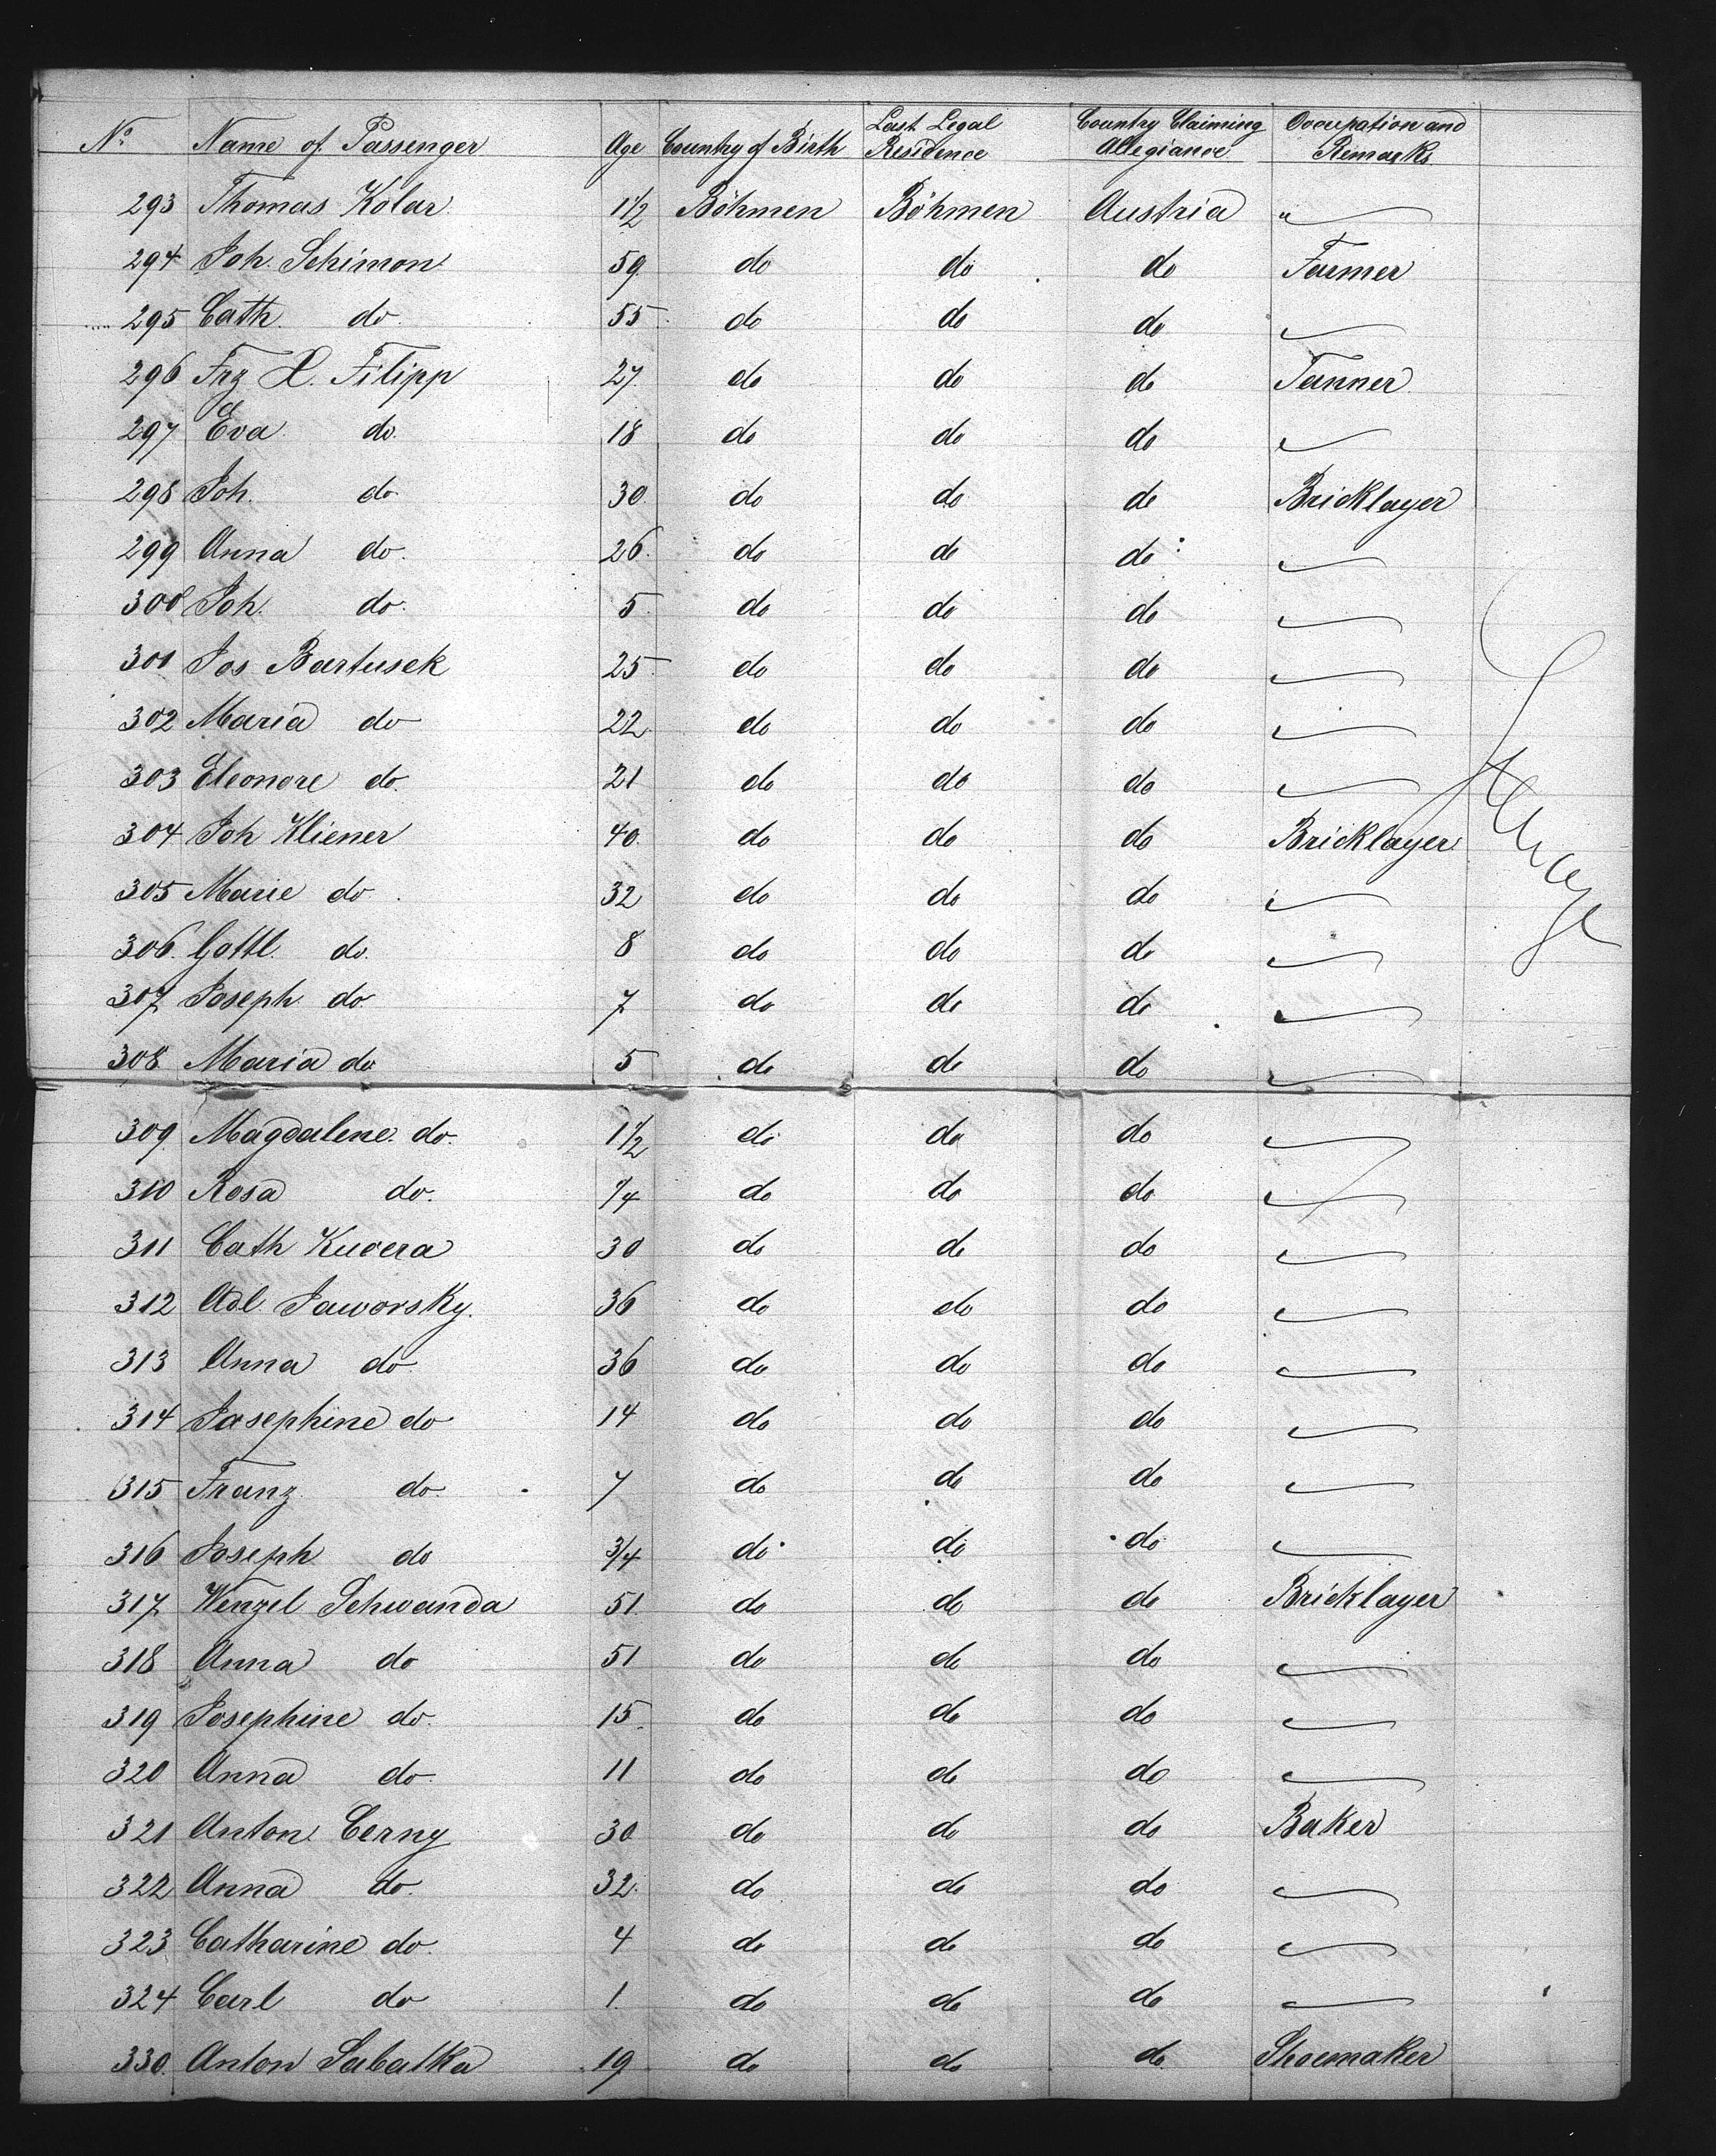 No. Name of Passenger Age Country of Birth Last Legal Residence Country Claiming Allegiance Occupation and Remarks
293 Thomas Kolar 1 1/2 Böhmen Böhmen Austria "
294 Joh. Schimon 59 do do do Farmer
295 Cath. do. 55 do do do
296 Frz X. Filipp 27 do do do Tanner
297 Eva do. 18 do do do
298 Joh. do 30 do do do Bricklayer
299 Anna do. 26 do do do
300 Joh. do. 5 do do do
301 Jos Bartusek 25 do do do
302 Maria do 22 do do do
303 Eleonore do. 21 do do do
304 Joh Kliener 40 do do do Bricklayer
305 Marie do. 32 do do do
306. Gottl. do. 8 do do do
307 Joseph do 7 do do do
308 Maria do 5 do do do
309. Magdalene do. 1 1/2 do do do
310 Rosa do. /4 do do do
311 Cath Kucera 30 do do do
312 Adl Jaworsky. 36 do do do
313 Anna do 36 do do do
314 Josephine do 14 do do do
315 Franz do. 7 do do do
316 Joseph do 3/4 do do do
317 Wenzel Schwanda 51. do do do Bricklayer
318 Anna do 51 do do do
319 Josephine do. 15 do do do
320 Anna do. 11 do do do
321 Anton Cerny 30 do do do Baker
322 Anna do. 32. do do do
323 Catharine do. 4 do do do
324 Carl do 1. do do do
330. Anton Sabatka 19 do do do Shoemaker